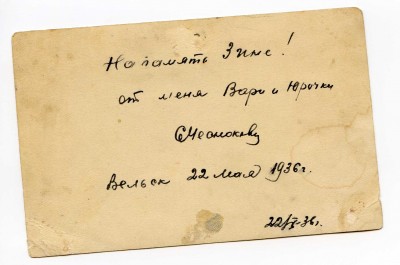 На память Зине!
от меня Вари и Юрочки
Вельск 22 мая 1936 г.
22/V-36 г.